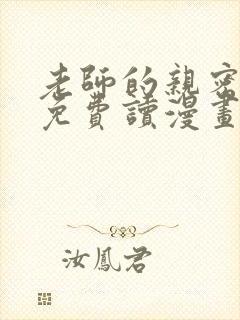 老師的親密
免費讀漫畫
汝鳳君